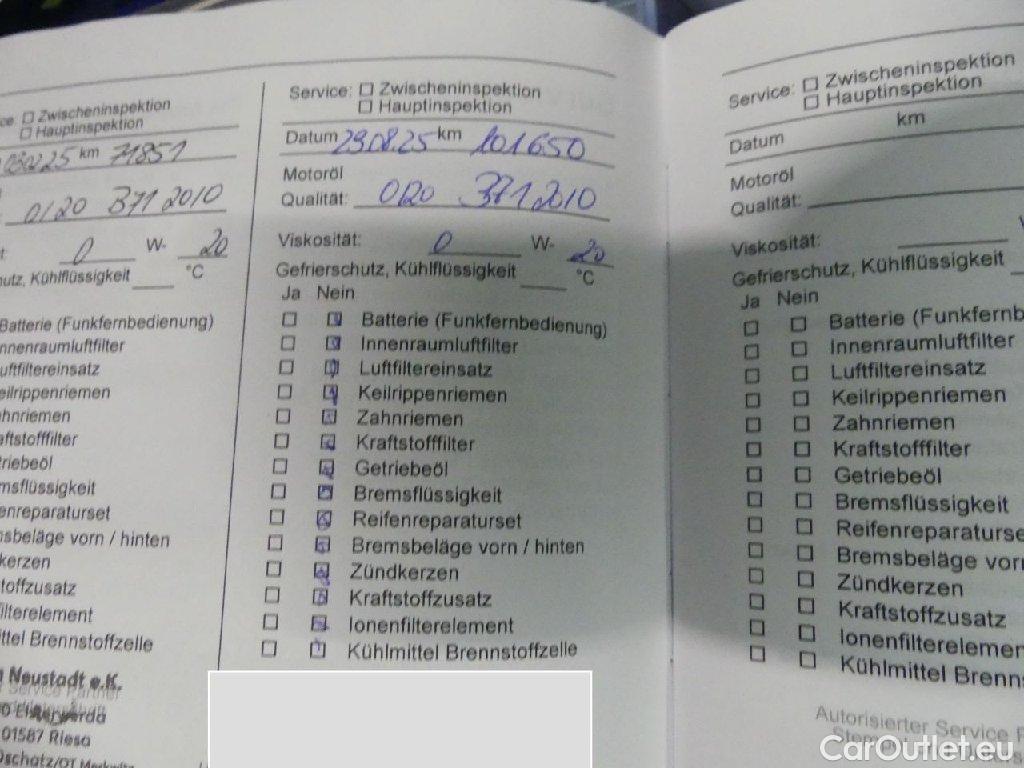 ce: □ Zwischeninspektion
□ Hauptinspektion
030225 km 71851
0120 371 2010
t: 0 W- 20
hutz, Kühlflüssigkeit ___ °C
Batterie (Funkfernbedienung)
nnenraumluftfilter
uftfiltereinsatz
eilrippenriemen
ahnriemen
aftstofffilter
riebeöl
msflüssigkeit
enreparaturset
nsbeläge vorn / hinten
kerzen
toffzusatz
ilterelement
ittel Brennstoffzelle
Neustadt e.K.
Service Partner
0 Elsterwerda
01587 Riesa
Service: □ Zwischeninspektion
□ Hauptinspektion
Datum 29.08.25 km 101650
Motoröl
Qualität: 0120 371 2010
Viskosität: 0 W- 20
Gefrierschutz, Kühlflüssigkeit ___ °C
Ja Nein
Batterie (Funkfernbedienung)
Innenraumluftfilter
Luftfiltereinsatz
Keilrippenriemen
Zahnriemen
Kraftstofffilter
Getriebeöl
Bremsflüssigkeit
Reifenreparaturset
Bremsbeläge vorn / hinten
Zündkerzen
Kraftstoffzusatz
Ionenfilterelement
Kühlmittel Brennstoffzelle
Service: □ Zwischeninspektion
□ Hauptinspektion
Datum km
Motoröl
Qualität:
Viskosität:
Gefrierschutz, Kühlflüssigkeit
Ja Nein
Batterie (Funkfernb
Innenraumluftfilter
Luftfiltereinsatz
Keilrippenriemen
Zahnriemen
Kraftstofffilter
Getriebeöl
Bremsflüssigkeit
Reifenreparaturse
Bremsbeläge vor
Zündkerzen
Kraftstoffzusatz
Ionenfilterelemen
Kühlmittel Brenns
Autorisierter Service P
CarOutlet.eu